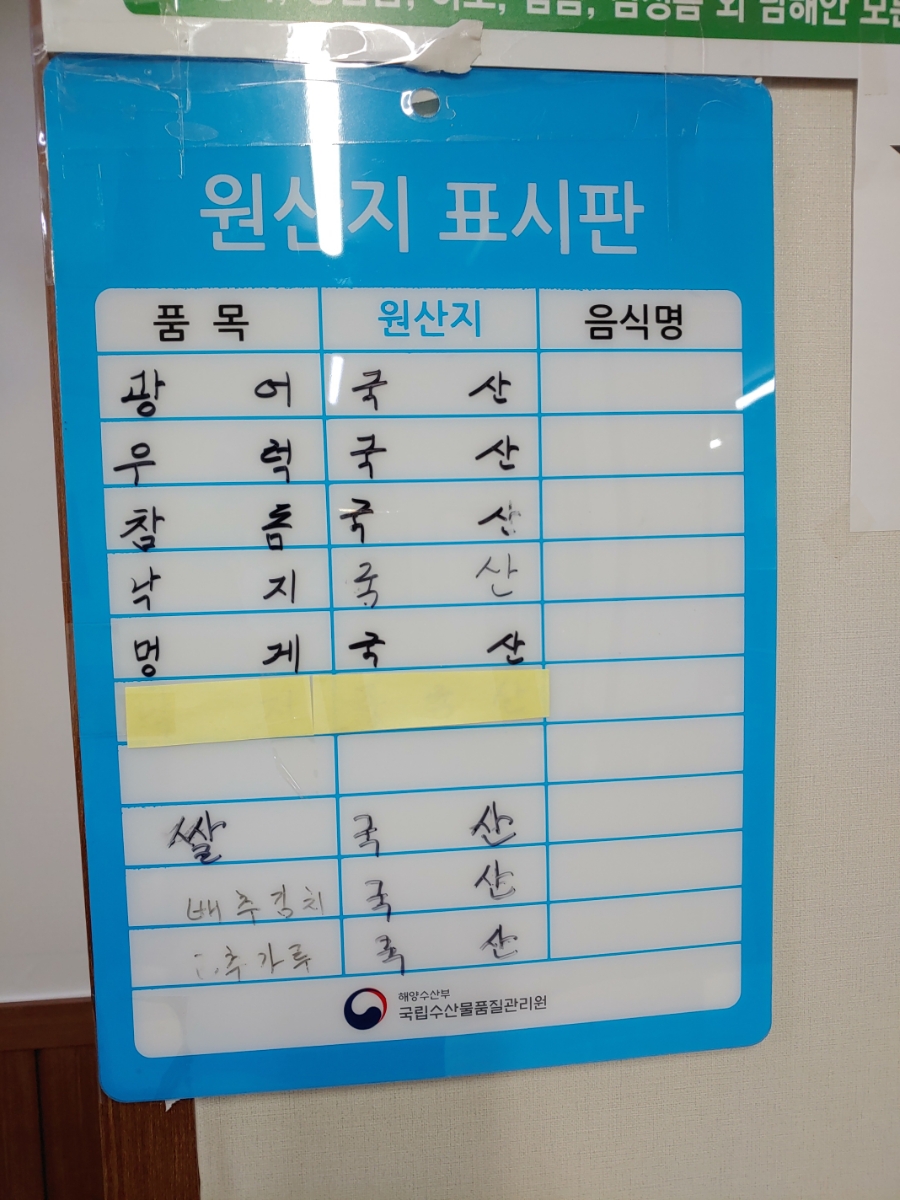 외 남해안 모든
원산지 표시판
품 목 원산지 음식명
광 어 국 산
우 럭 국 산
참 돔 국 산
낙 지 국 산
멍 게 국 산
쌀 국 산
배추김치 국 산
추가루 국 산
해양수산부
국립수산물품질관리원